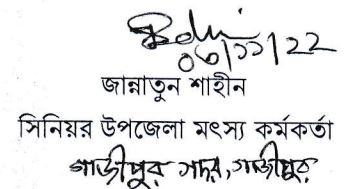 ০৬/১১/২২
জান্নাতুন শাহীন
সিনিয়র উপজেলা মৎস্য কর্মকর্তা
গাজীপুর সদর, গাজীপুর